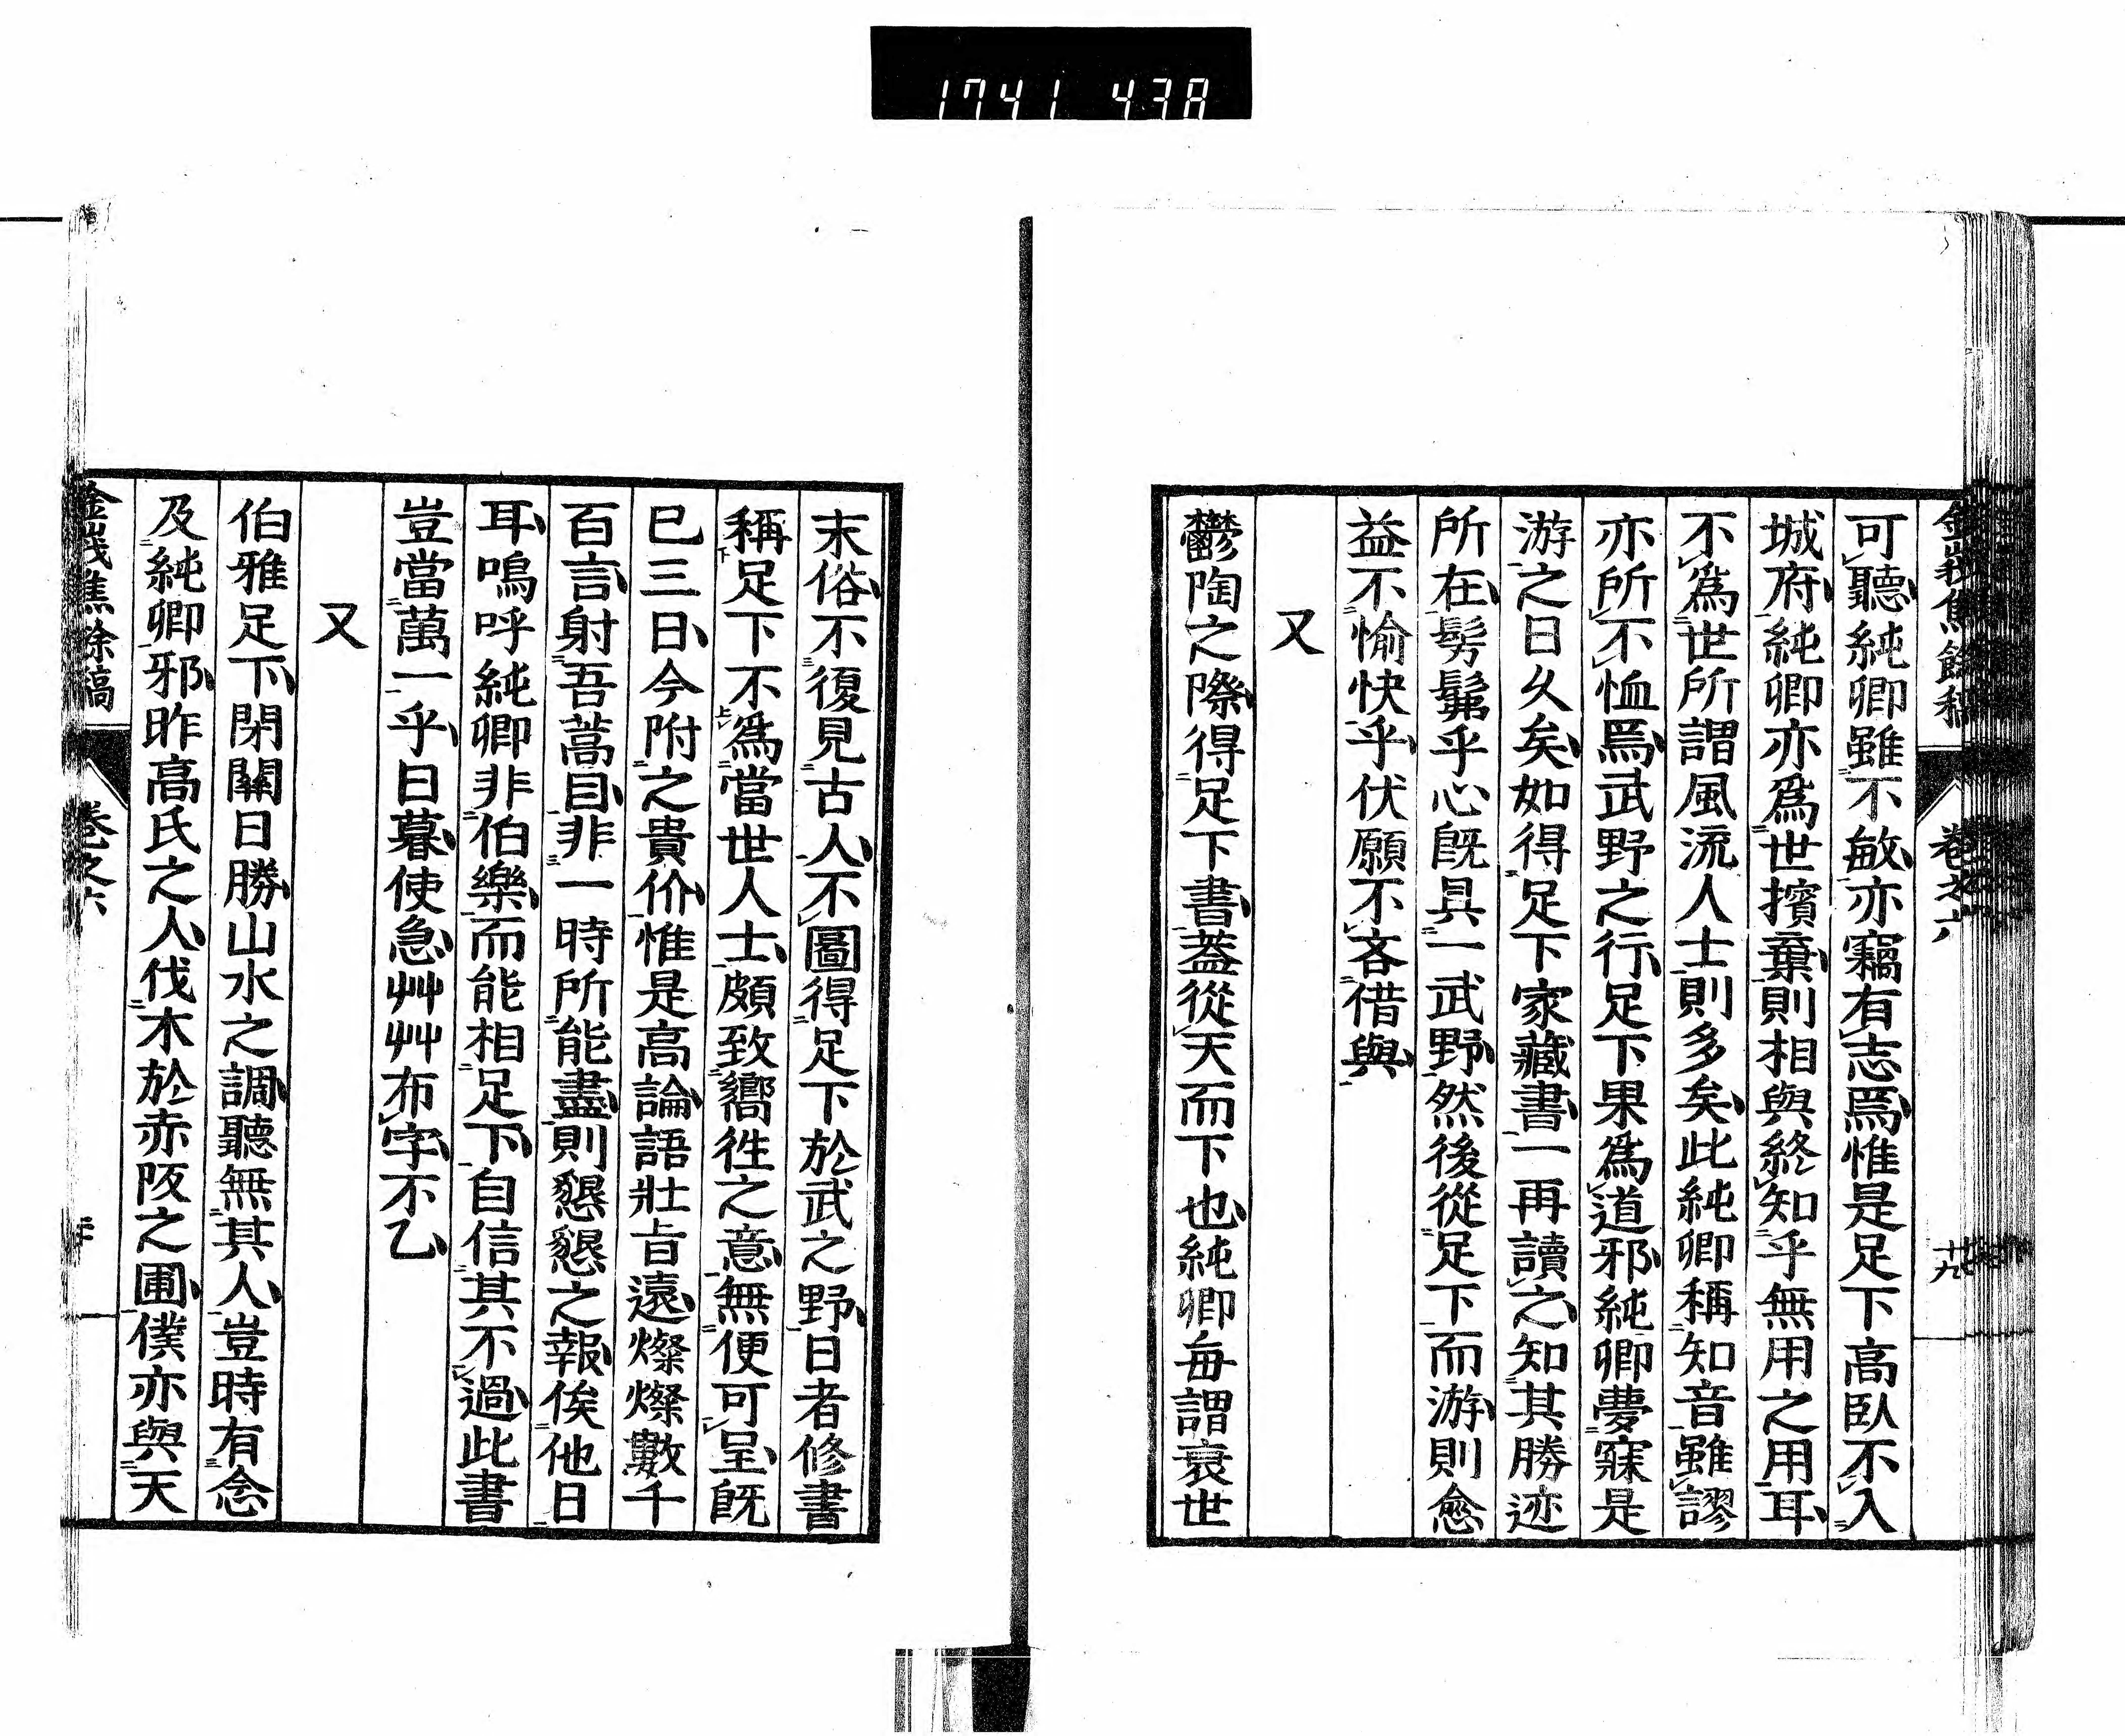 1741 438
可聽純卿雖不敏亦竊有志焉惟是足下高臥不入
城府純卿亦爲世擯棄則相與終知乎無用之用耳
不爲世所謂風流人士則多矣此純卿稱知音雖謬
亦所不恤焉武野之行足下果爲道邪純卿夢寐是
游之日久矣如得足下家藏書一再讀之知其勝迹
所在髣髴乎心既具一武野然後從足下而游則愈
益不愉快乎伏願不吝借與
又
鬱陶之際得足下書蓋從天而下也純卿每謂衰世
末俗不復見古人不圖得足下於武之野日者修書
稱足下不爲當世人士頗致嚮徃之意無便可呈既
巳三日今附之貴价惟是高論語壯旨遠燦燦數千
百言射吾蒿目非一時所能盡則懇懇之報俟他日
耳嗚呼純卿非伯樂而能相足下自信其不過此書
豈當萬一乎日暮使急艸艸布字不乙
又
伯雅足下閉關日勝山水之調聽無其人豈時有念
及純卿邪昨高氏之人伐木於赤阪之圃僕亦與天
金峩焦餘稿
卷之六